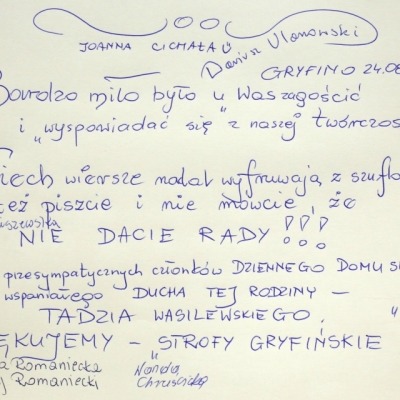 JOANNA CICHAŁA
Dariusz Ulanowski
GRYFINO 24.08
Bardzo miło było u Was zagościć
i „wyspowiadać się” z naszej twórczoś
iech wiersze nadal wyfruwają z szufla
też piszcie i nie mówcie, że
NIE DACIE RADY !!!
przesympatycznych członków DZIENNEGO DOMU S
wspaniałego DUCHA TEJ RODZINY –
TADZIA WASILEWSKIEGO.
ĘKUJEMY – STROFY GRYFIŃSKIE
Romaniecka
Romaniecki
Wanda